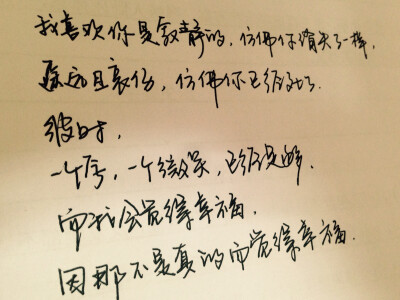 我喜欢你是寂静的，仿佛你消失了一样，
遥远且哀伤，仿佛你已经死了．
彼时，
一个字，一个微笑，已经足够．
而我会觉得幸福，
因那不是真的而觉得幸福．